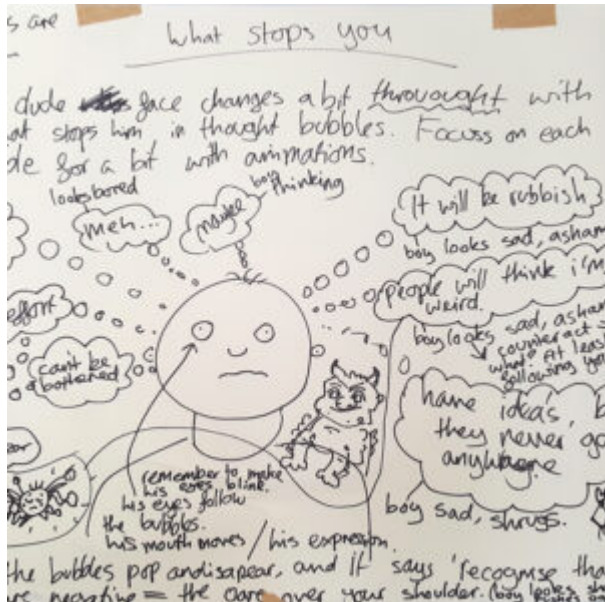 s are
what stops you
dude face changes a bit througought with
at stops him in thought bubbles. Focuss on each
de for a bit with animations.
looks bored
meh...
maybe
boy thinking
It will be rubbish
boy looks sad, asham
people will think i'm
weird.
boy looks sad, asham
counteract
what? At leas
following yo
effort
can't be
bothered
have ideas, b
they never go
anyway
boy sad, shrugs.
remember to make
his eyes blink.
his eyes follow
the bubbles.
his mouth moves / his expression.
the bubbles pop and isapear, and it says 'recognise tha
re negative = the over your shoulder. (boy looks sh